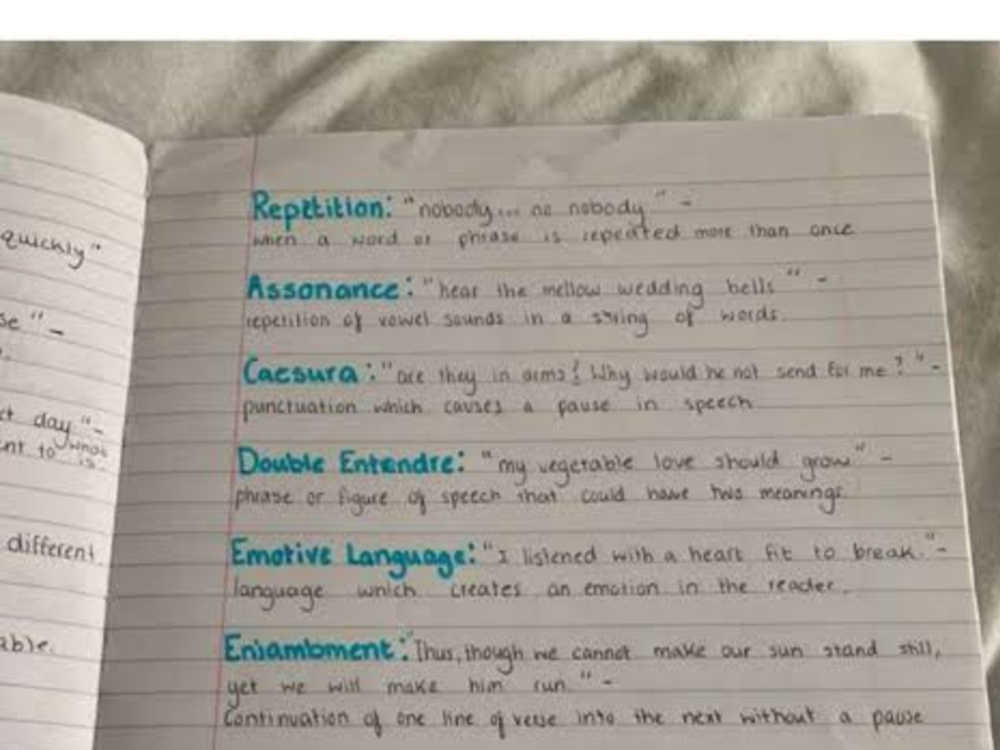 quickly"
se" -
ct day" -
nt to what
is.
different.
able.
Repetition: "nobody... no nobody" -
when a word or phrase is repeated more than once
Assonance: "hear the mellow wedding bells" -
repetition of vowel sounds in a string of words.
Caesura: "are they in arms? Why would he not send for me?" -
punctuation which causes a pause in speech
Double Entendre: "my vegetable love should grow" -
phrase or figure of speech that could have two meanings.
Emotive Language: "I listened with a heart fit to break." -
language which creates an emotion in the reader.
Enjambment: "Thus, though we cannot make our sun stand still,
yet we will make him run." -
Continuation of one line of verse into the next without a pause